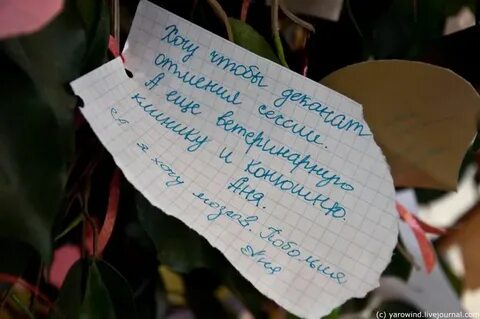 Хочу чтобы деканат
отменил сессию.
А еще ветеринарную
клинику и конюшню.
Аня.
я хочу мозгов. Побольше
(c) yarowind.livejournal.com